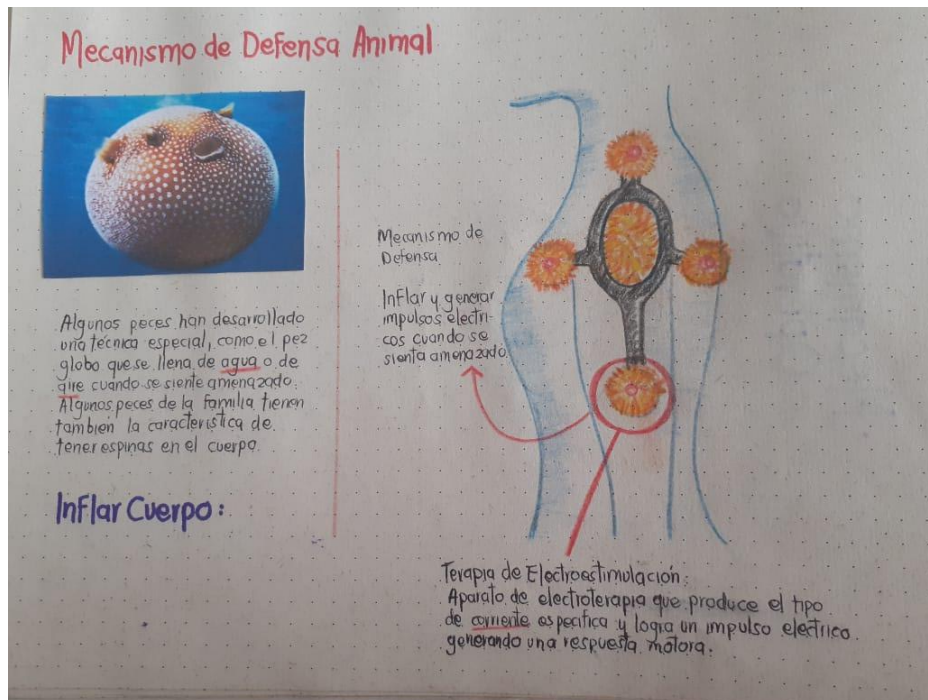 Mecanismo de Defensa Animal
Algunos peces han desarrollado
una técnica especial, como el pez
globo que se llena de agua o de
aire cuando se siente amenazado.
Algunos peces de la familia tienen
tambien la característica de
tener espinas en el cuerpo.
Inflar Cuerpo:
Mecanismo de
Defensa
Inflar y generar
impulsos electri-
cos cuando se
sienta amenazado.
Terapia de Electroestimulación:
Aparato de electroterapia que produce el tipo
de corriente especifica y logra un impulso electrico
generando una respuesta motora.